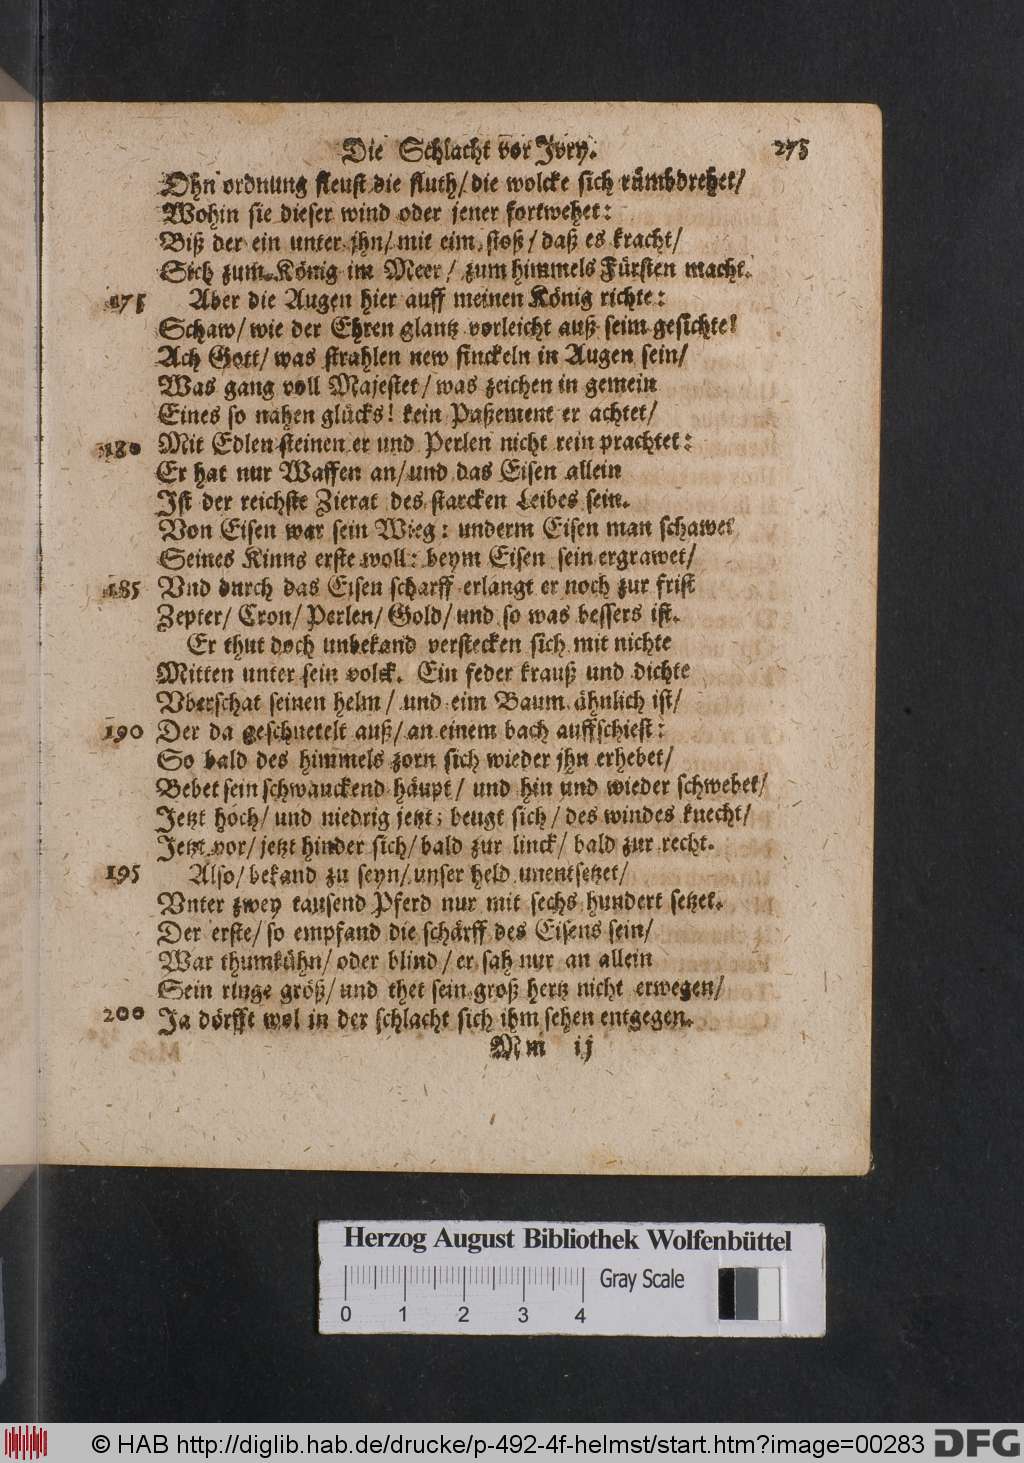 Die Schlacht vor Jvry. 275
Ohn ordnung fleust die fluth/ die wolcke sich rümbdrehet/
Wohin sie dieser wind oder jener fortwehet:
Biß der ein unter jhn/ mit eim stoß/ daß es kracht/
Sich zum König im Meer/ zum himmels Fürsten macht.
175 Aber die Augen hier auff meinen König richte:
Schaw/ wie der Ehren glantz vorleicht auß seim gesichte!
Ach Gott/ was strahlen new finckeln in Augen sein/
Was gang voll Majestet/ was zeichen in gemein
Eines so nahen glücks! kein Paßement er achtet/
180 Mit Edlen steinen er und Perlen nicht rein prachtet:
Er hat nur Waffen an/ und das Eisen allein
Jst der reichste Zierat des starcken Leibes sein.
Von Eisen war sein Wieg: underm Eisen man schawet
Seines Kinns erste woll: beym Eisen sein ergrawet/
185 Vnd durch das Eisen scharff erlangt er noch zur frist
Zepter/ Cron/ Perlen/ Gold/ und so was bessers ist.
Er thut doch unbekand verstecken sich mit nichte
Mitten unter sein volck. Ein feder krauß und dichte
Vberschat seinen helm/ und eim Baum ähnlich ist/
190 Der da geschnetelt auß/ an einem bach auffschiest:
So bald des himmels zorn sich wieder jhn erhebet/
Bebet sein schwanckend häupt/ und hin und wieder schwebet/
Jetzt hoch/ und niedrig jetzt; beugt sich/ des windes knecht/
Jetzt vor/ jetzt hinder sich/ bald zur linck/ bald zur recht.
195 Also/ bekand zu seyn/ unser held unentsetzet/
Vnter zwey tausend Pferd nur mit sechs hundert setzet.
Der erste/ so empfand die schärff des Eisens sein/
War thumkühn/ oder blind/ er sah nur an allein
Sein ringe größ/ und thet sein groß hertz nicht erwegen/
200 Ja dörfft wol in der schlacht sich ihm sehen entgegen.
Mm ij
Herzog August Bibliothek Wolfenbüttel
Gray Scale
0 1 2 3 4
© HAB http://diglib.hab.de/drucke/p-492-4f-helmst/start.htm?image=00283 DFG